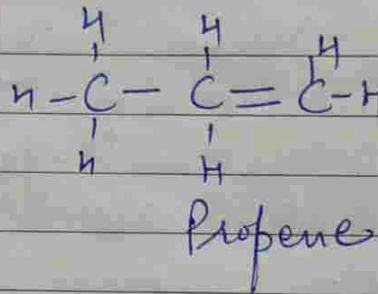 H H H
H - C - C = C - H
H H
Propene